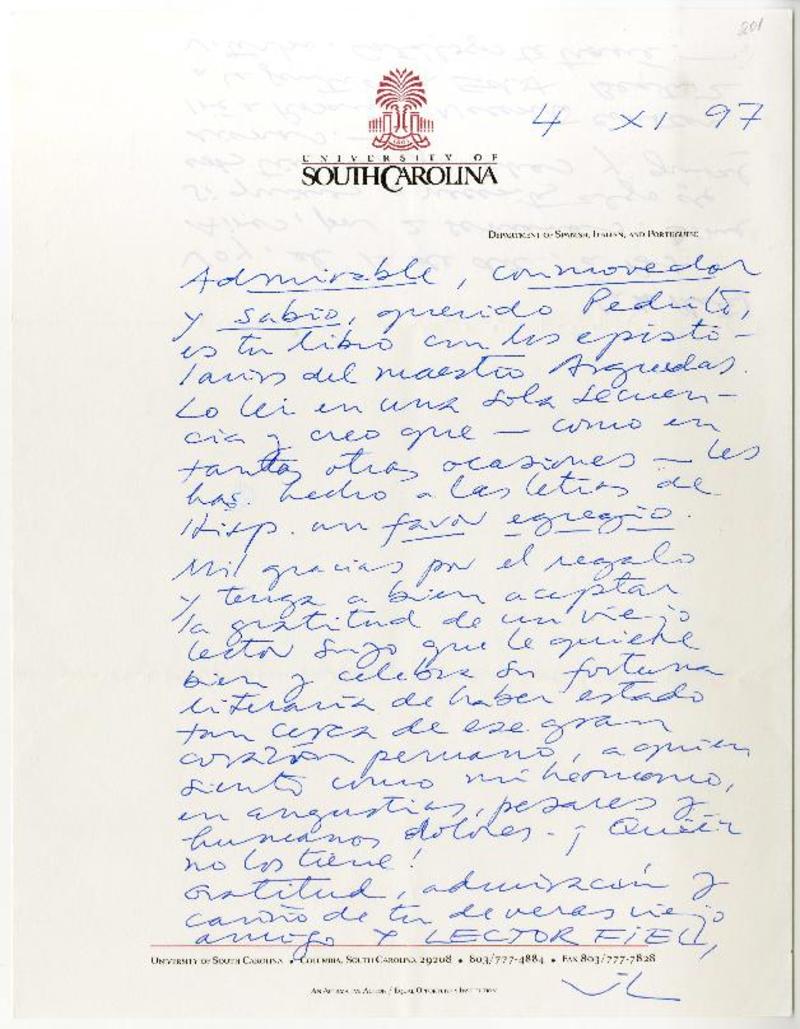 201
4 XI 97
UNIVERSITY OF
SOUTH CAROLINA
DEPARTMENT OF SPANISH, ITALIAN, AND PORTUGUESE
Admirable, conmovedor
y sabio, querido Pedrito,
es tu libro con los episto-
larios del maestro Arguedas.
Lo leí en una sola secuen-
cia y creo que — como en
tantas otras ocasiones — les
has hecho a las letras de
Hisp. un favor egregio.
Mil gracias por el regalo
y tenga a bien aceptar
la gratitud de un viejo
lector suyo que le quiere
bien y celebra su fortuna
literaria de haber estado
tan cerca de ese gran
corazón peruano, a quien
siento como mi hermano,
en angustias, pesares y
humanos dolores. ¡Quién
no los tiene!
Gratitud, admiración y
cariño de tu de veras viejo
amigo Y LECTOR FIEL,
UNIVERSITY OF SOUTH CAROLINA • COLUMBIA, SOUTH CAROLINA 29208 • 803/777-4884 • FAX 803/777-7828
AN AFFIRMATIVE ACTION / EQUAL OPPORTUNITY INSTITUTION